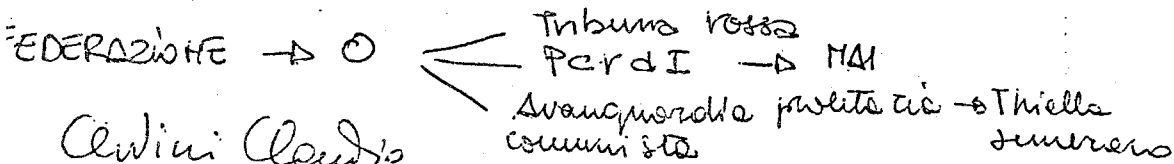 FEDERAZIONE → O
Tribuna rossa
PcrdI → MAI
Avanguardia proletaria → Thiella
comunista Semeraro
Claudio